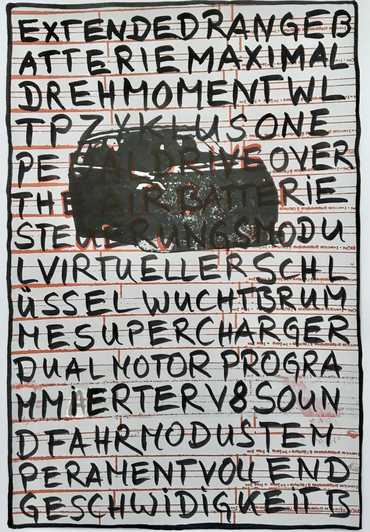 EXTENDEDRANGEB
ATTERIEMAXIMAL
DREHMOMENTWL
TPZYKLUSONE
PEDALDRIVEOVER
THEAIRBATTERIE
STEUERUNGSMODU
LVIRTUELLERSCHL
ÜSSELWUCHTBRUM
MESUPERCHARGER
DUALMOTORPROGRA
MMiERTERV8SOUN
DFAHRMODUSTEM
PERAMENTVOLLEND
GESCHWiDiGKEiTB